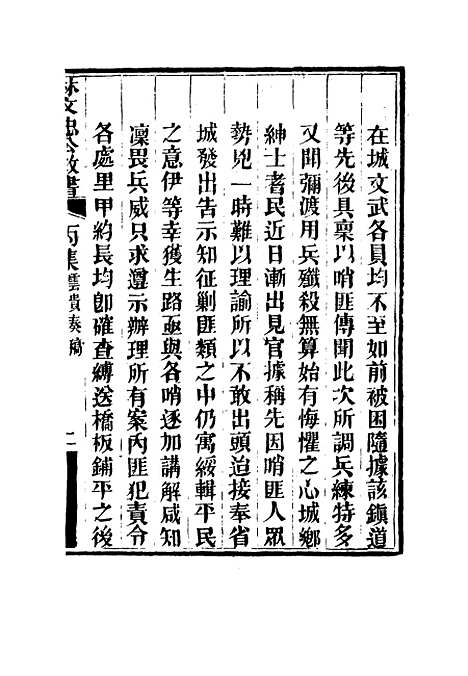 在城文武各員均不至如前被困隨據該鎭道
等先後具稟以哨匪傳聞此次所調兵練特多
又聞彌渡用兵殲殺無算始有悔懼之心城鄉
紳士耆民近日漸出見官據稱先因哨匪人眾
勢兇一時難以理諭所以不敢出頭迨接奉省
城發出告示知征剿匪類之中仍寓綏輯平民
之意伊等幸獲生路亟與各哨逐加講解咸知
凜畏兵威只求遵示辦理所有案內匪犯責令
各處里甲約長均卽確查縛送橋板鋪平之後
林文忠公政書 丙集雲貴奏稿 二